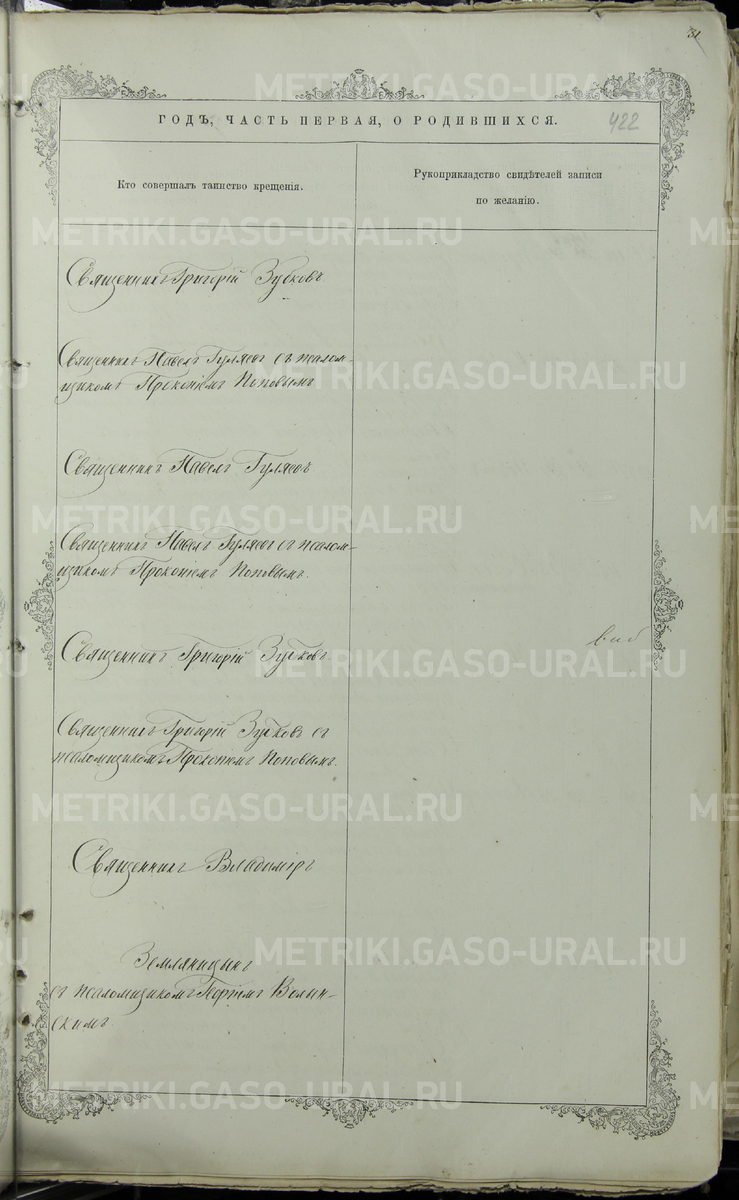 31
ГОДЪ, ЧАСТЬ ПЕРВАЯ, О РОДИВШИХСЯ.
422
Кто совершалъ таинство крещенія.
Рукоприкладство свидѣтелей записи
по желанію.
Священникъ Григорій Зубковъ.
Священникъ Павелъ Гуляевъ съ псалом-
щикомъ Прокопіемъ Поповымъ
Священникъ Павелъ Гуляевъ
Священникъ Павелъ Гуляевъ съ псалом-
щикомъ Прокопіемъ Поповымъ.
Священникъ Григорій Зубковъ.
Священникъ Григорій Зубковъ съ
псаломщикомъ Прокопіемъ Поповымъ.
Священникъ Владиміръ
Земляницынъ
съ псаломщикомъ Волын-
скимъ
METRIKI.GASO-URAL.RU